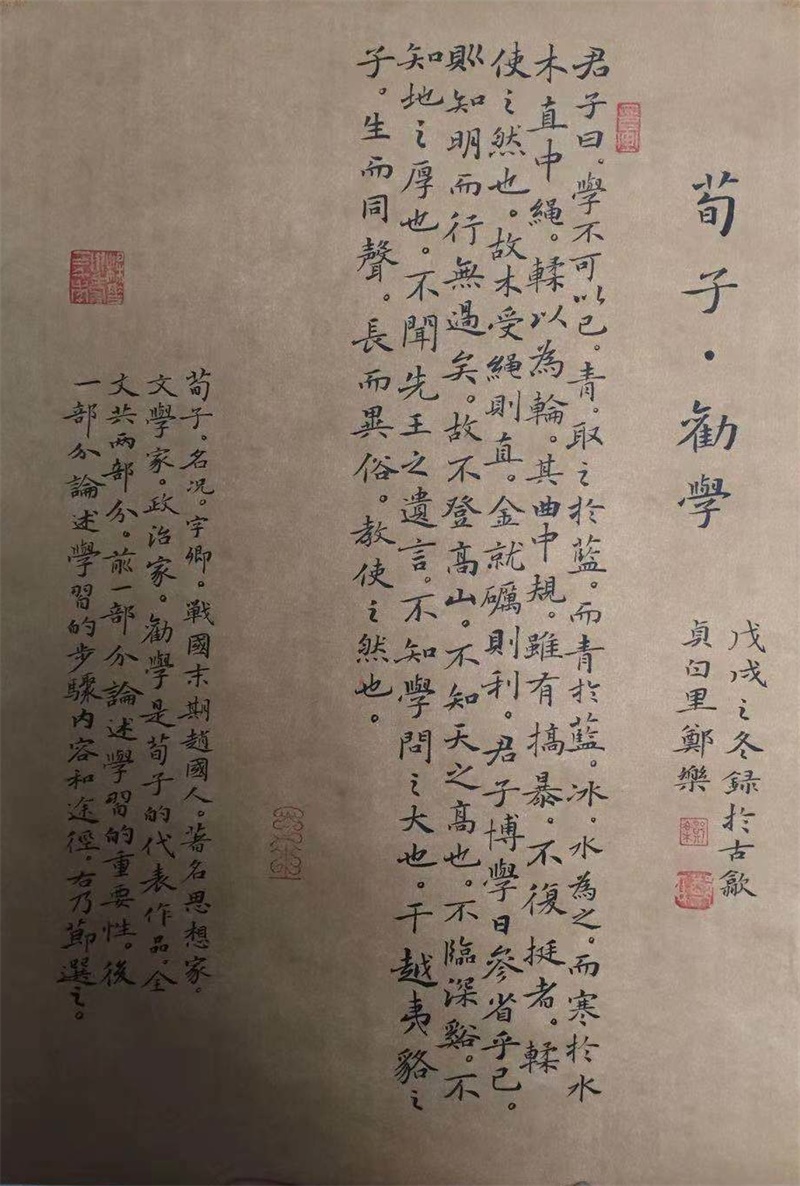 荀子·勸學
戊戌之冬録於古歙
貞白里鄭樂
君子曰。學不可以已。青。取之於藍。而青於藍。冰。水為之。而寒於水
木直中繩。輮以為輪。其曲中規。雖有搞暴。不復挺者。輮
使之然也。故木受繩則直。金就礪則利。君子博學日參省乎己。
則知明而行無過矣。故不登高山。不知天之高也。不臨深谿。不
知地之厚也。不聞先王之遺言。不知學問之大也。干越夷貉之
子。生而同聲。長而異俗。教使之然也。
荀子。名况。字卿。戰國末期趙國人。著名思想家。
文學家。政治家。勸學是荀子的代表作品。全
文共兩部分。前一部分論述學習的重要性。後
一部分論述學習的步驟内容和途徑。右乃節選之。